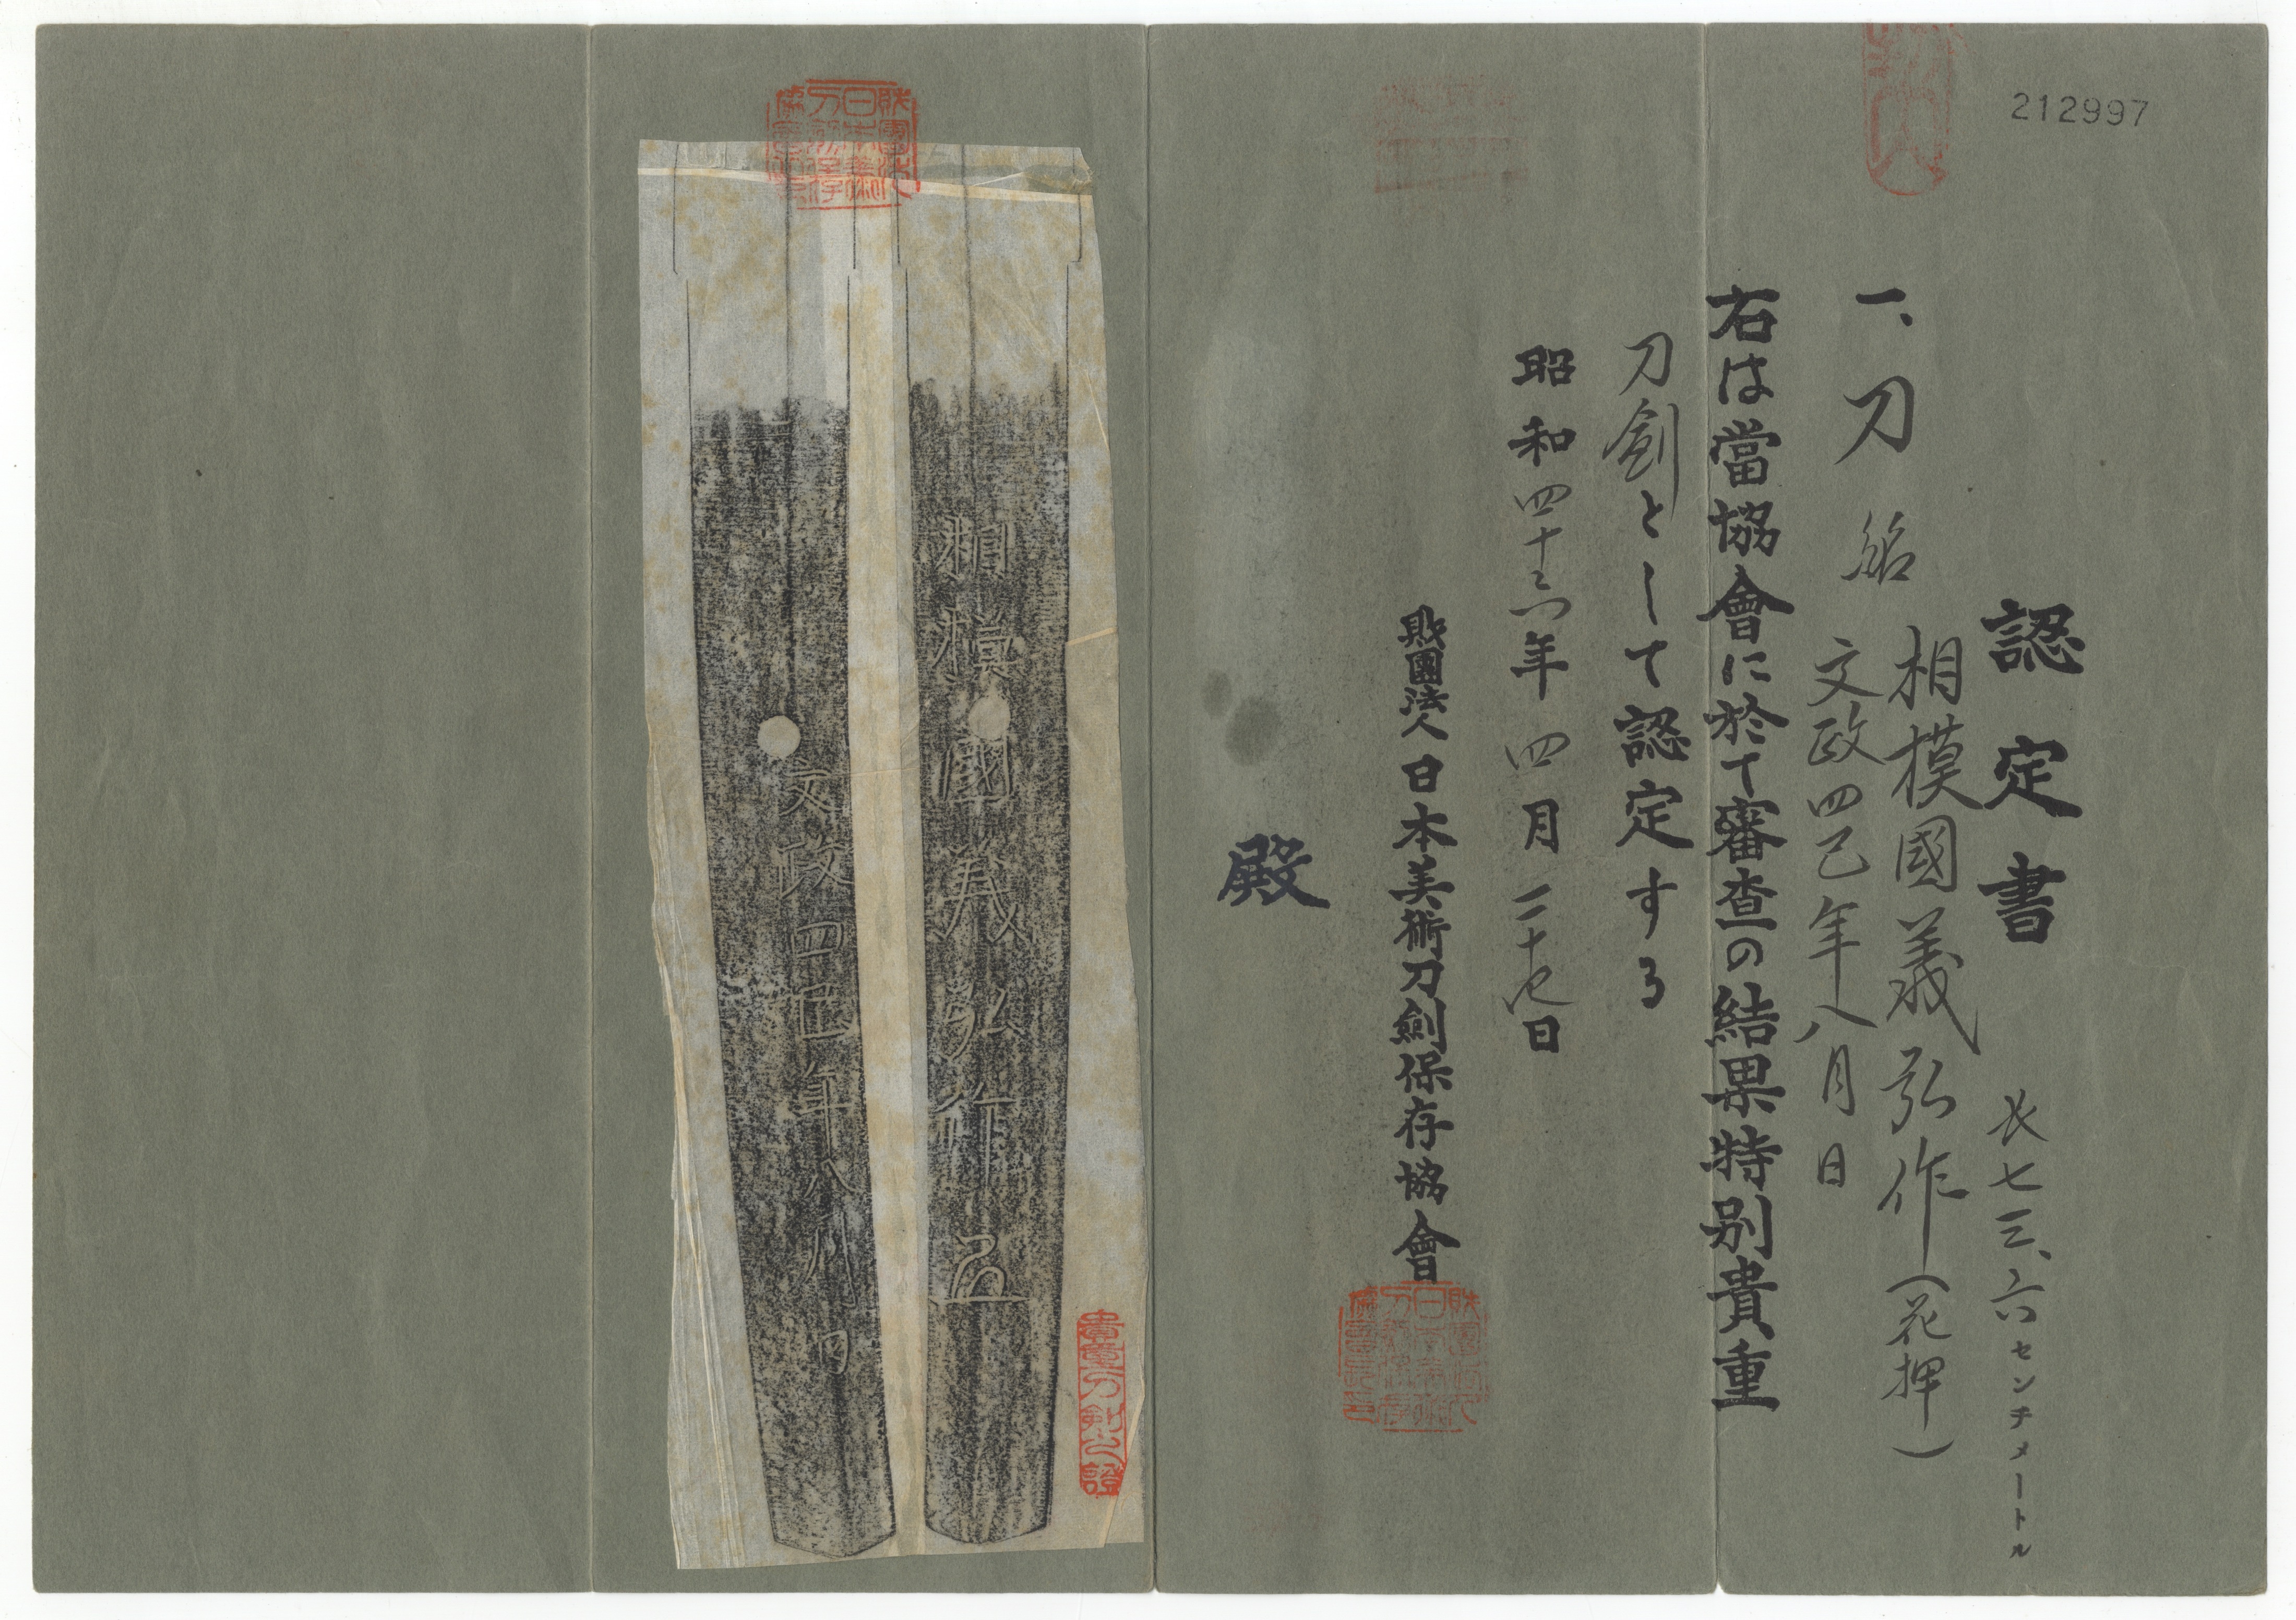 212997
認定書
長七三、六センチメートル
一、刀 銘 相模國義弘作（花押）
文政四巳年八月日
右は當協會に於て審査の結果特別貴重
刀剣として認定する
昭和四十六年四月二十七日
財團法人日本美術刀劍保存協會
殿
相模國義弘作
文政四巳年八月日
貴重刀剣之證